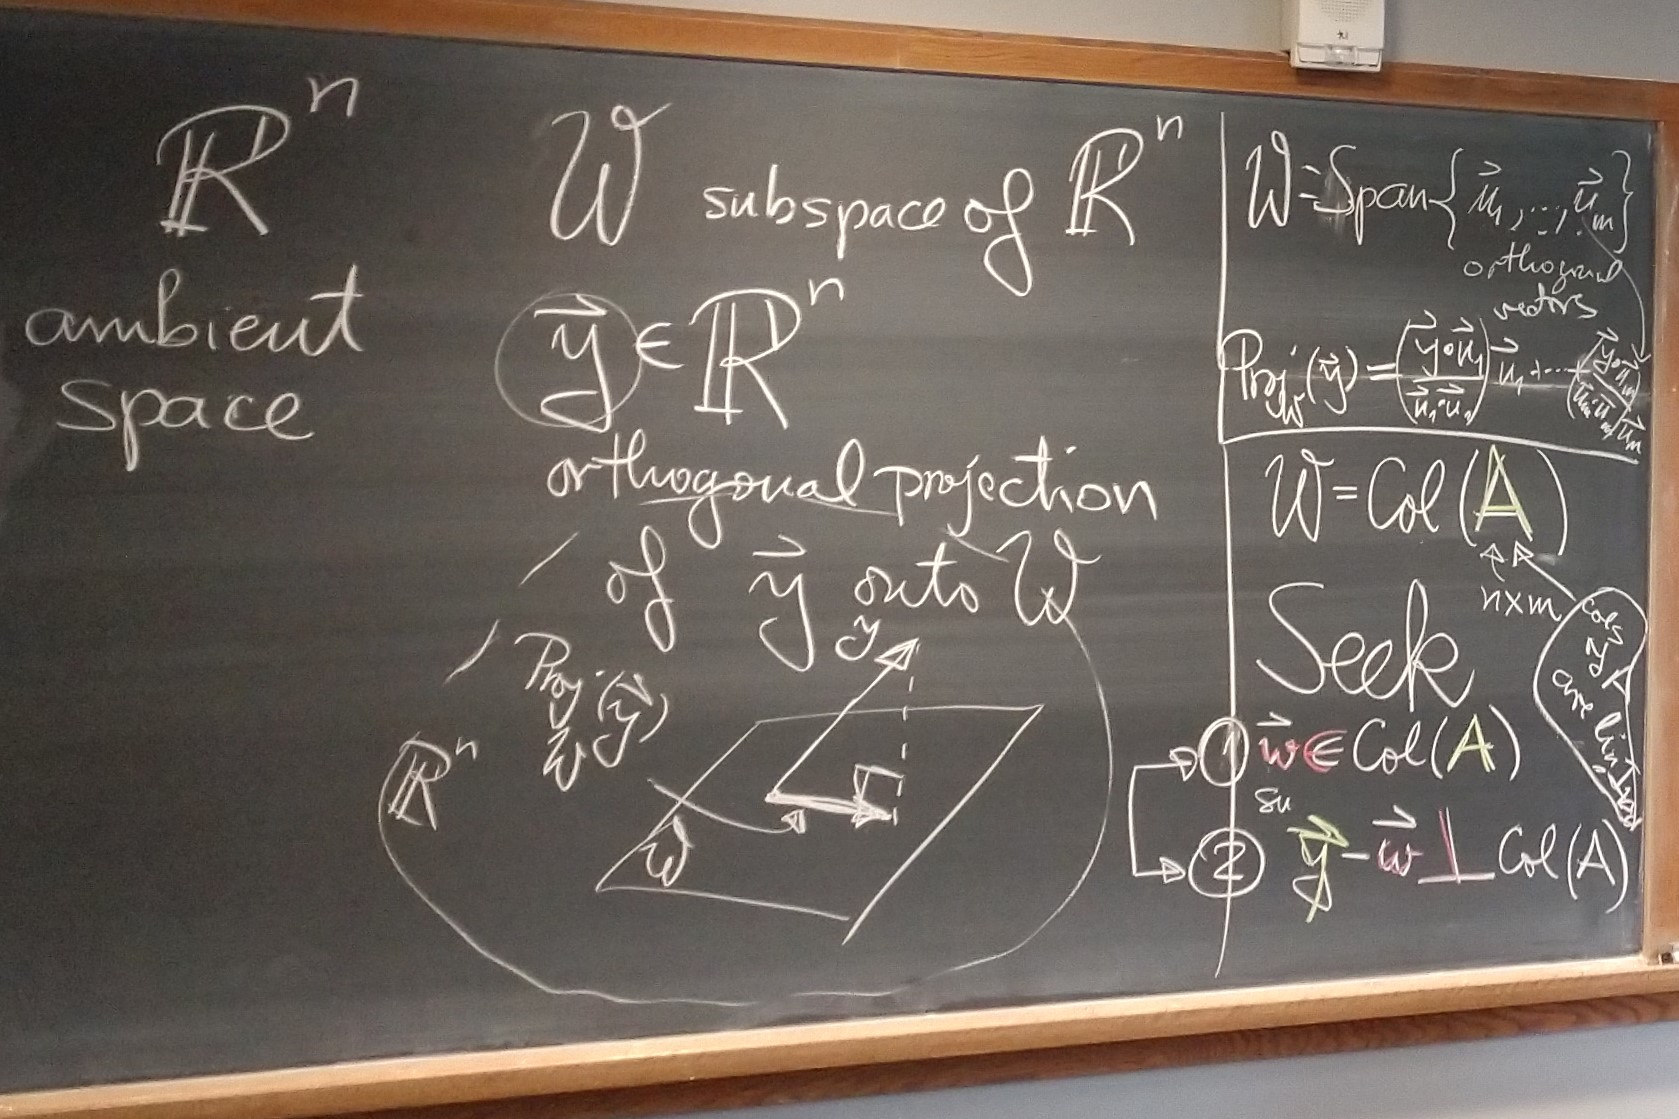 ℝⁿ
ambient
space
W subspace of ℝⁿ
y⃗ ∈ ℝⁿ
orthogonal projection
of y⃗ onto W
Proj_W(y⃗)
y
ℝⁿ
W
W = Span{u⃗₁, ..., u⃗ₘ}
orthogonal
vectors
Proj_W(y⃗) = (y⃗∘u⃗₁ / u⃗₁∘u⃗₁) u⃗₁ + ... + (y⃗∘u⃗ₘ / u⃗ₘ∘u⃗ₘ) u⃗ₘ
W = Col(A)
n×m
cols
of A
are lin
Seek
① w⃗ ∈ Col(A)
② y⃗ − w⃗ ⊥ Col(A)